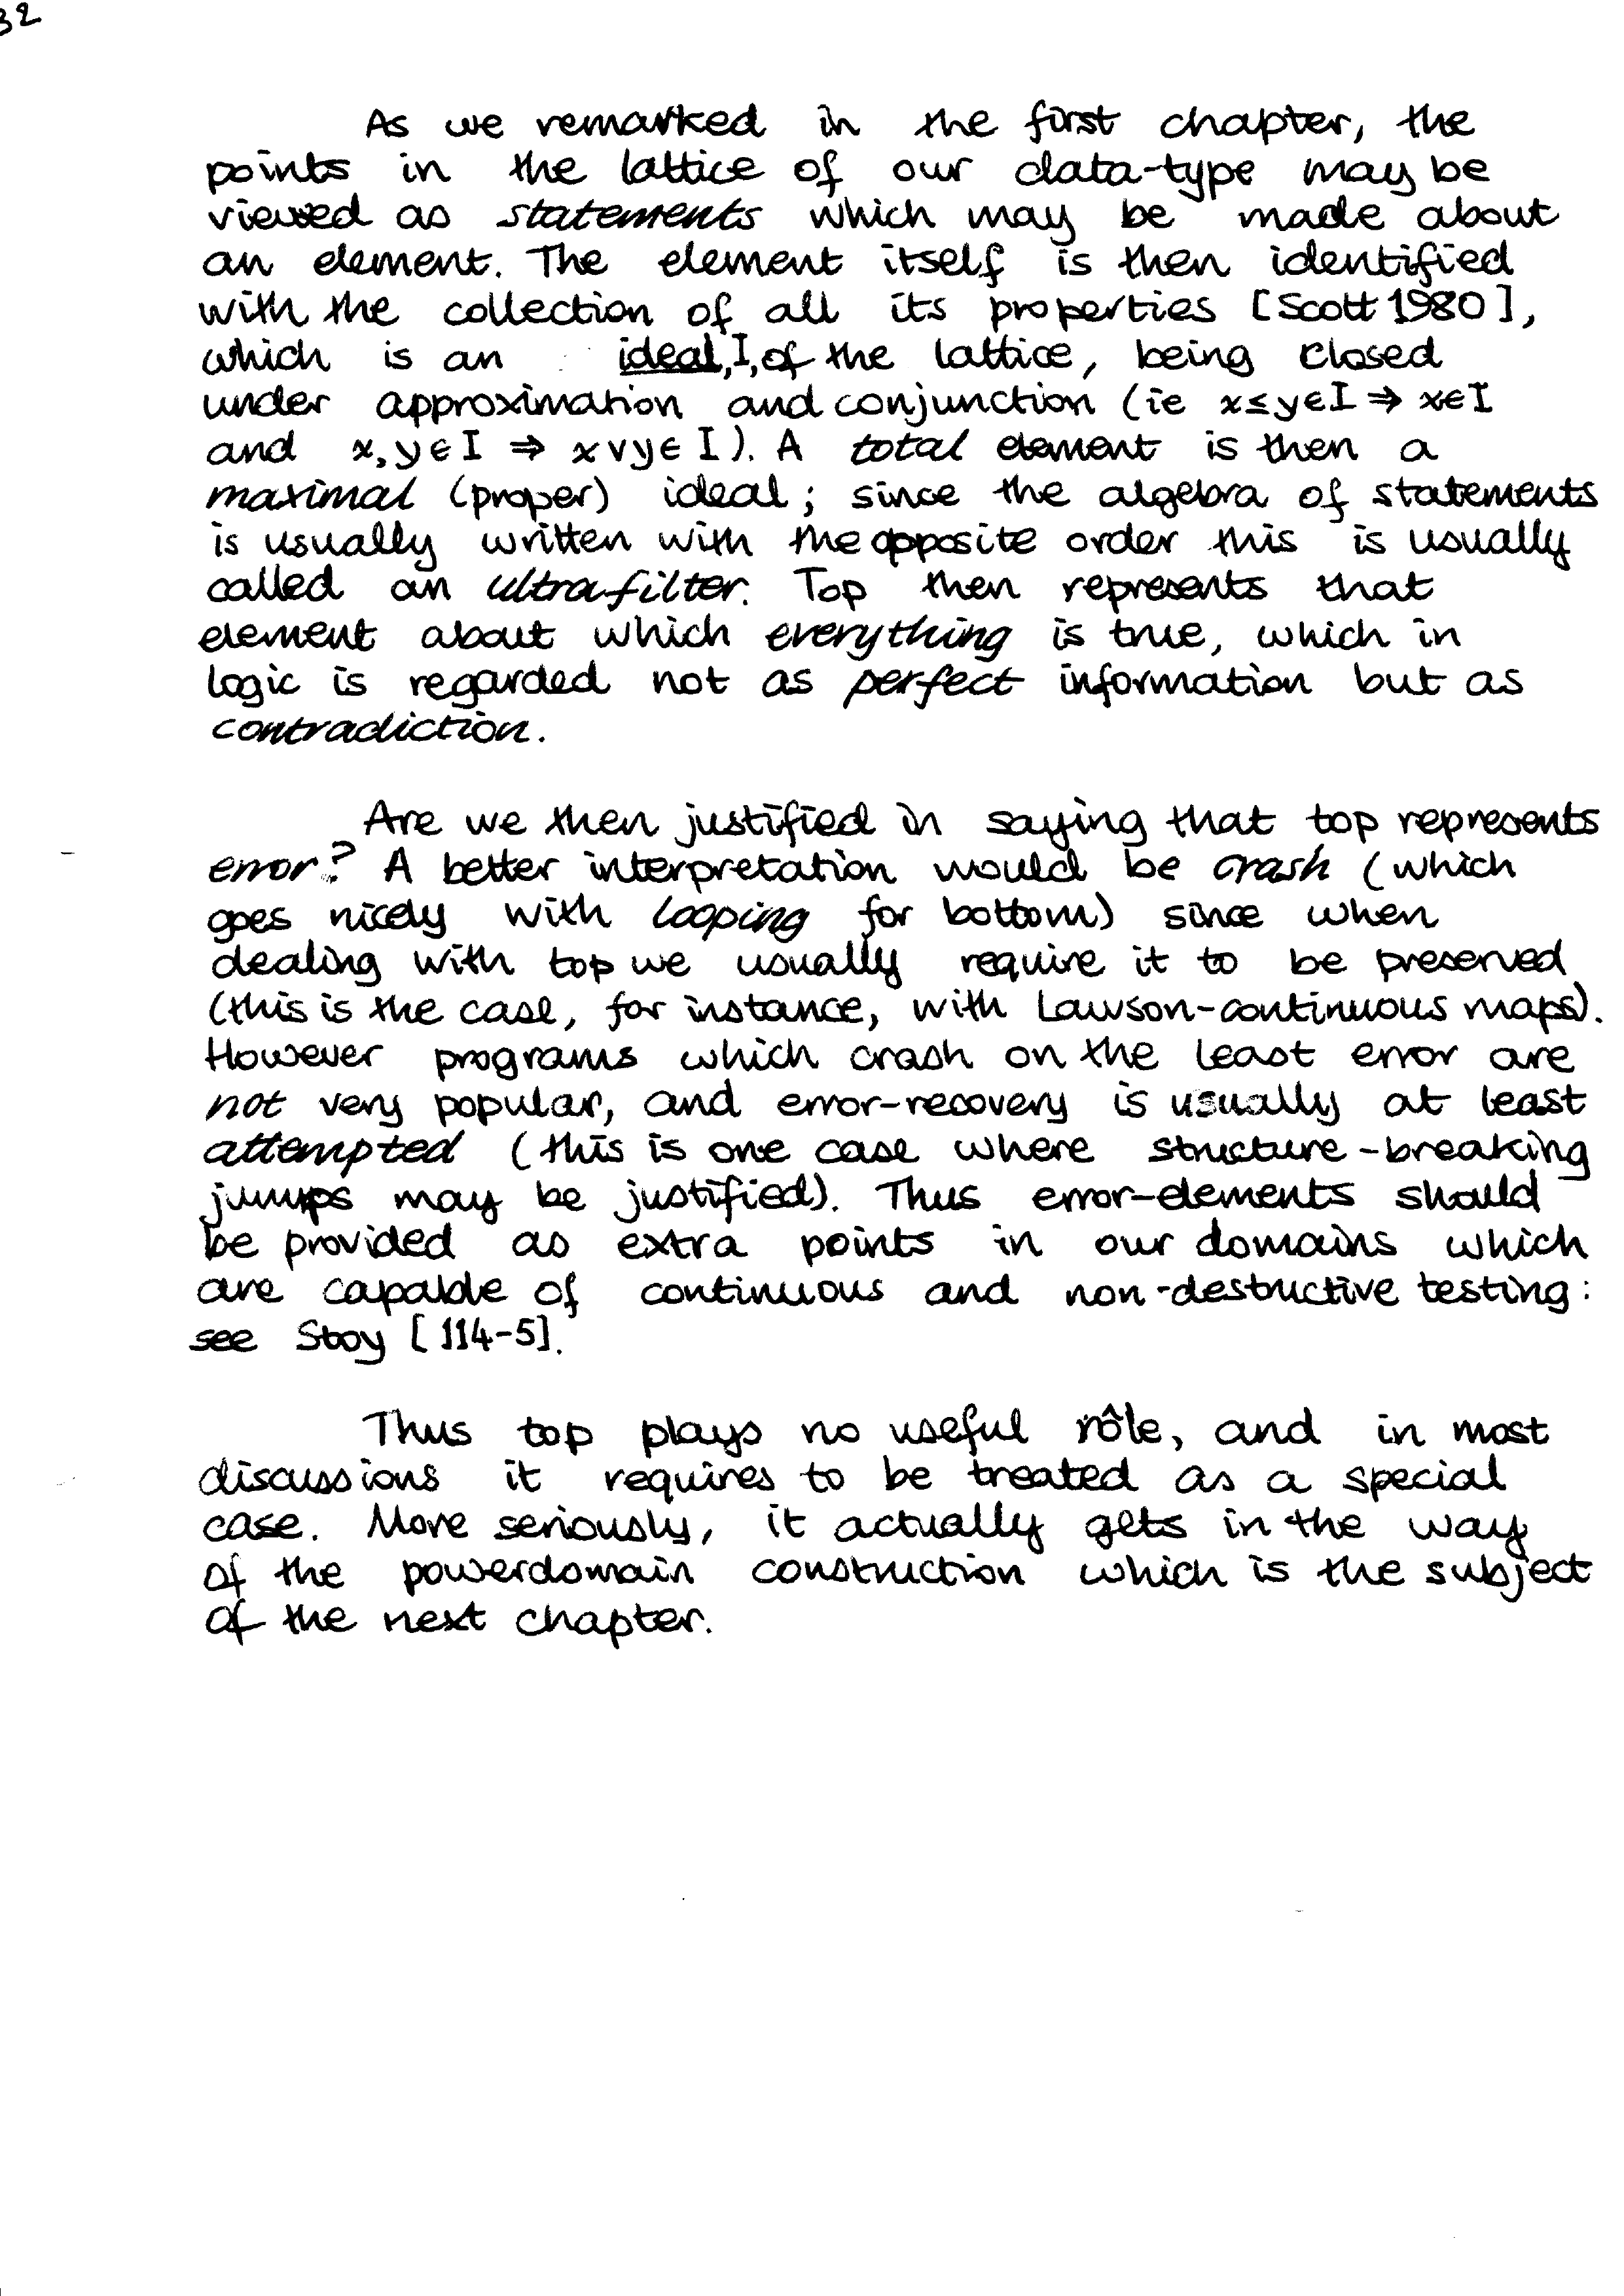 32
As we remarked in the first chapter, the
points in the lattice of our data-type may be
viewed as statements which may be made about
an element. The element itself is then identified
with the collection of all its properties [Scott 1980],
which is an ideal, I, of the lattice, being closed
under approximation and conjunction (ie x≤y∈I ⇒ x∈I
and x,y∈I ⇒ x∨y∈I). A total element is then a
maximal (proper) ideal; since the algebra of statements
is usually written with the opposite order this is usually
called an ultrafilter. Top then represents that
element about which everything is true, which in
logic is regarded not as perfect information but as
contradiction.
Are we then justified in saying that top represents
error? A better interpretation would be crash (which
goes nicely with looping for bottom) since when
dealing with top we usually require it to be preserved
(this is the case, for instance, with Lawson-continuous maps).
However programs which crash on the least error are
not very popular, and error-recovery is usually at least
attempted (this is one case where structure-breaking
jumps may be justified). Thus error-elements should
be provided as extra points in our domains which
are capable of continuous and non-destructive testing:
see Stoy [114-5].
Thus top plays no useful rôle, and in most
discussions it requires to be treated as a special
case. More seriously, it actually gets in the way
of the powerdomain construction which is the subject
of the next chapter.